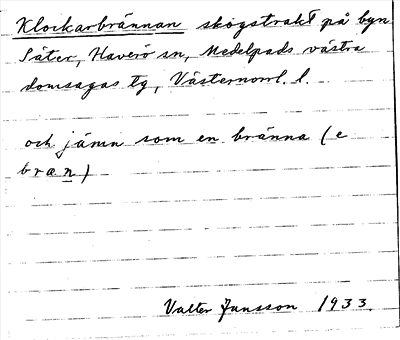 Klockarbrännan skogstrakt på byn
Säter, Haverö sn, Medelpads västra
domsagas tg, Västernorrl. l.
och jämn som en bränna (e
bran)
Valter Jansson 1933.